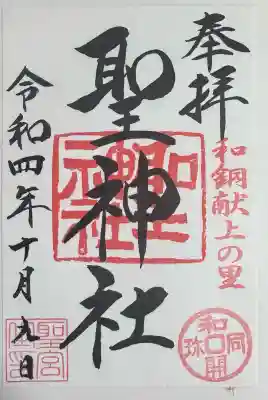 奉拝
和銅献上の里
聖神社
令和四年十月九日
聖神社
和同開珎